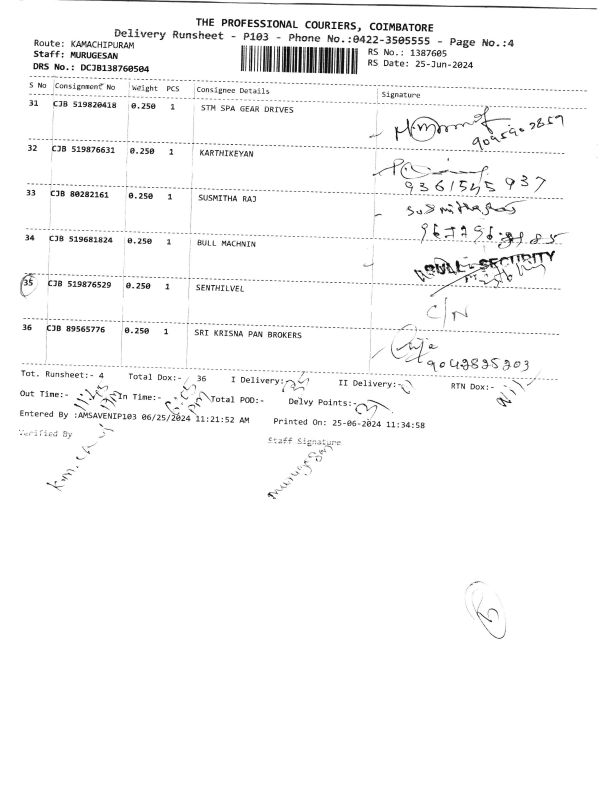 THE PROFESSIONAL COURIERS, COIMBATORE
Delivery Runsheet - P103 - Phone No.:0422-3505555 - Page No.:4
Route: KAMACHIPURAM
RS No.: 1387605
Staff: MURUGESAN
RS Date: 25-Jun-2024
DRS No.: DCJB138760504
S No Consignment No Weight PCS Consignee Details Signature
31 CJB 519820418 0.250 1 STM SPA GEAR DRIVES
32 CJB 519876631 0.250 1 KARTHIKEYAN
9361545937
33 CJB 80282161 0.250 1 SUSMITHA RAJ
34 CJB 519681824 0.250 1 BULL MACHNIN
BULL - SECURITY
35 CJB 519876529 0.250 1 SENTHILVEL
C/N
36 CJB 89565776 0.250 1 SRI KRISNA PAN BROKERS
9042825203
Tot. Runsheet:- 4 Total Dox:- 36 I Delivery:- II Delivery:- RTN Dox:- Nil
Out Time:- In Time:- Total POD:- Delvy Points:-
Entered By :AMSAVENIP103 06/25/2024 11:21:52 AM Printed On: 25-06-2024 11:34:58
Verified By Staff Signature